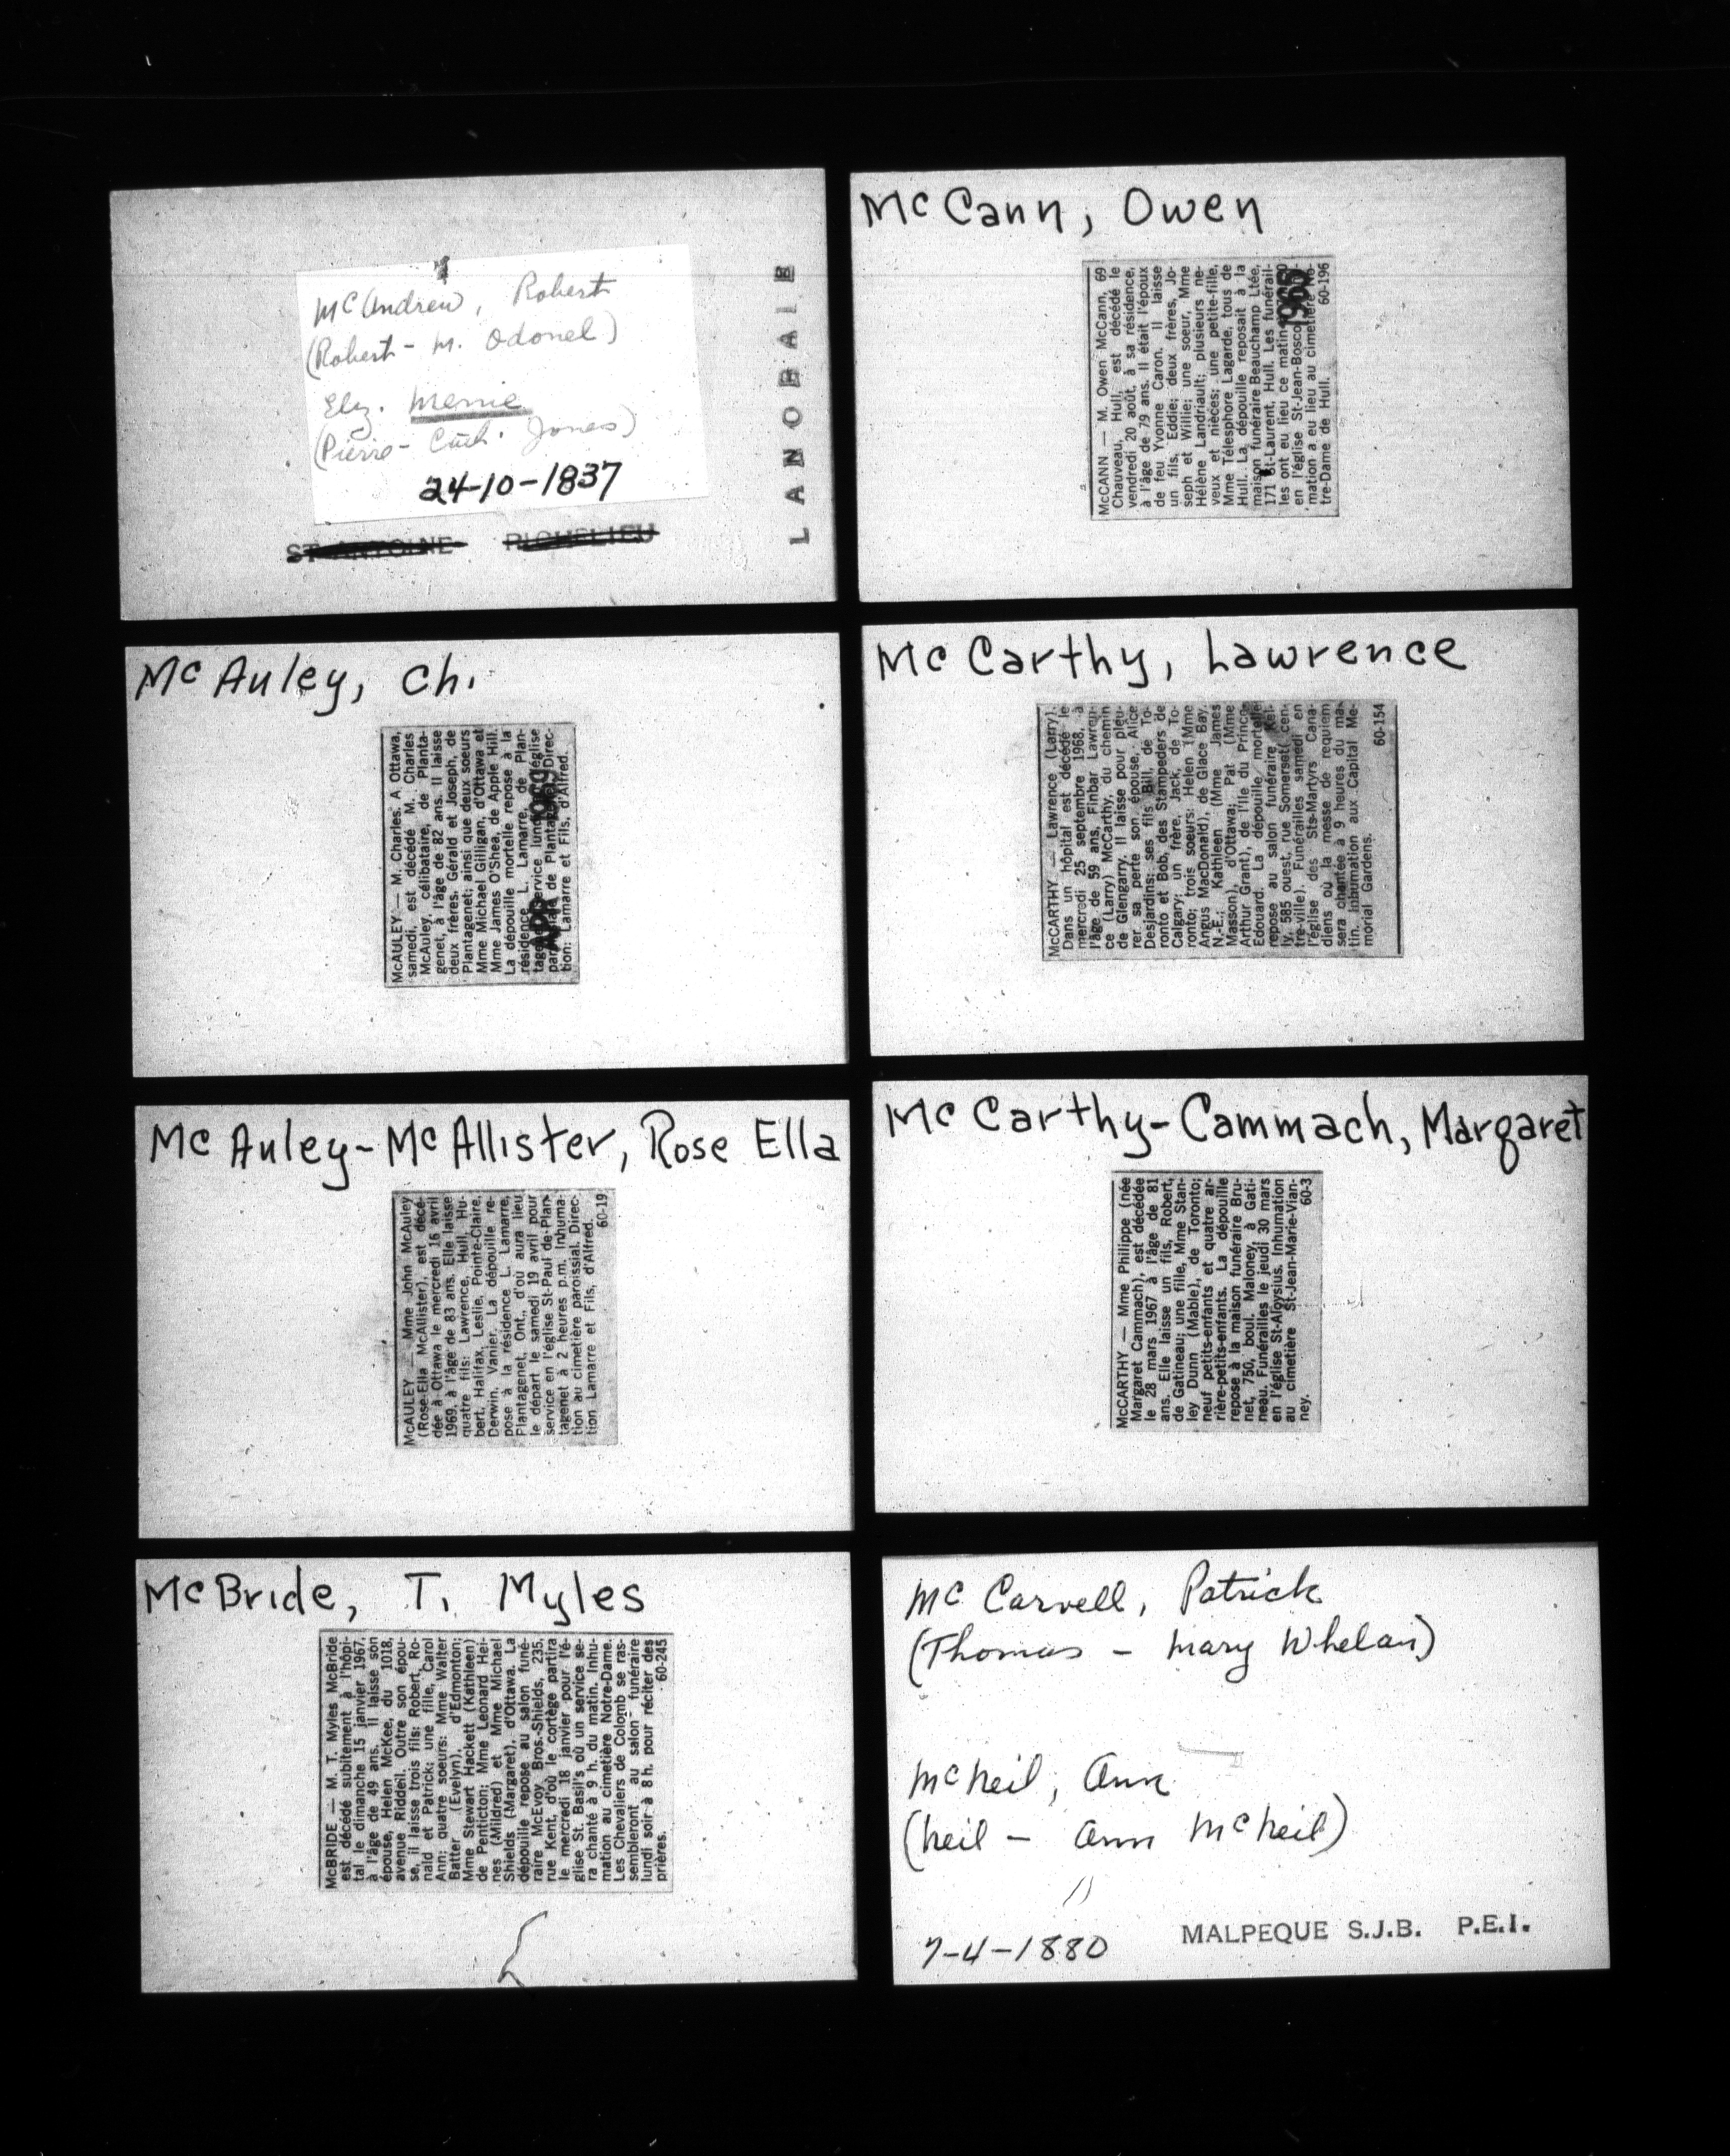 McAndrew, Robert
(Robert - M. Odonel)
Eliz. Menie
(Pierre - Cath. Jones)
24-10-1837
ST ANTOINE RICHELIEU
LANORAIE
McAuley, Ch.
McAULEY — M. Charles. A Ottawa,
samedi, est décédé M. Charles
McAuley, célibataire, de Planta-
genet, à l'âge de 82 ans. Il laisse
deux frères. Gérald et Joseph, de
Plantagenet; ainsi que deux soeurs
Mme Michael Gilligan, d'Ottawa et
Mme James O'Shea, de Apple Hill.
La dépouille mortelle repose à la
résidence L. Lamarre, de Plan-
service église
de Direc-
tion: Lamarre et Fils, d'Alfred.
APR 1969
McAuley-McAllister, Rose Ella
McAULEY — Mme John McAuley
(Rose-Ella McAllister), est décé-
dée à Ottawa le mercredi 16 avril
1969, à l'âge de 83 ans. Elle laisse
quatre fils: Lawrence, Hull, Hu-
bert, Halifax, Leslie, Pointe-Claire,
Derwin, Vanier. La dépouille re-
pose à la résidence L. Lamarre,
Plantagenet, Ont., d'où aura lieu
le départ le samedi 19 avril pour
service en l'église St-Paul de-Plan-
tagenet à 2 heures p.m. Inhuma-
tion au cimetière paroissial. Direc-
tion Lamarre et Fils, d'Alfred.
60-19
McBride, T. Myles
McBRIDE — M. T. Myles McBride
est décédé subitement à l'hôpi-
tal le dimanche 15 janvier 1967,
à l'âge de 49 ans. Il laisse son
épouse, Helen McKee, du 1018,
avenue Riddell. Outre son épou-
se, il laisse trois fils: Robert, Ro-
nald et Patrick; une fille, Carol
Ann; quatre soeurs: Mme Walter
Batter (Evelyn), d'Edmonton;
Mme Stewart Hackett (Kathleen)
de Penticton; Mme Leonard Hei-
nes (Mildred) et Mme Michael
Shields (Margaret), d'Ottawa. La
dépouille repose au salon funé-
raire McEvoy Bros.-Shields, 235,
rue Kent, d'où le cortège partira
le mercredi 18 janvier pour l'é-
glise St. Basil's où un service se-
ra chanté à 9 h. du matin. Inhu-
mation au cimetière Notre-Dame.
Les Chevaliers de Colomb se ras-
sembleront au salon funéraire
lundi soir à 8 h. pour réciter des
prières. 60-245
McCann, Owen
McCANN — M. Owen McCann, 69
Chauveau, Hull, est décédé le
vendredi 20 août, à sa résidence,
à l'âge de 79 ans. Il était l'époux
de feu Yvonne Caron. Il laisse
un fils, Eddie; deux frères, Jo-
seph et Willie; une soeur, Mme
Hélène Landriault; plusieurs ne-
veux et nièces; une petite-fille,
Mme Télesphore Lagarde, tous de
Hull. La dépouille reposait à la
maison funéraire Beauchamp Ltée,
171 St-Laurent, Hull. Les funérail-
les ont eu lieu ce matin
en l'église St-Jean-Bosco
mation a eu lieu au cimetière No-
tre-Dame de Hull. 60-196
McCarthy, Lawrence
McCARTHY — Lawrence (Larry).
Dans un hôpital est décédé le
mercredi 25 septembre 1968, à
l'âge de 59 ans, Finbar Lawren-
ce (Larry) McCarthy, du chemin
de Glengarry. Il laisse pour pleu-
rer sa perte son épouse, Alice
Desjardins; ses fils Bill, de To-
ronto et Bob, des Stampeders de
Calgary; un frère, Jack, de To-
ronto; trois soeurs: Helen (Mme
Angus MacDonald), de Glace Bay,
N.-E.; Kathleen (Mme James
Masson), d'Ottawa; Pat (Mme
Arthur Grant), de l'Ile du Prince-
Edouard. La dépouille mortelle
repose au salon funéraire Kel-
ly, 585 ouest, rue Somerset( cen-
tre-ville). Funérailles samedi en
l'église des Sts-Martyrs Cana-
diens où la messe de requiem
sera chantée à 9 heures du ma-
tin. Inhumation aux Capital Me-
morial Gardens.
60-154
McCarthy-Cammach, Margaret
McCARTHY — Mme Philippe (née
Margaret Cammach), est décédée
le 28 mars 1967 à l'âge de 81
ans. Elle laisse un fils, Robert,
de Gatineau; une fille, Mme Stan-
ley Dunn (Mable), de Toronto;
neuf petits-enfants et quatre ar-
rière-petits-enfants. La dépouille
repose à la maison funéraire Bru-
net, 750, boul. Maloney, à Gati-
neau. Funérailles le jeudi 30 mars
en l'église St-Aloysius. Inhumation
au cimetière St-Jean-Marie-Vian-
ney. 60-3
McCarvell, Patrick
(Thomas - Mary Whelan)
McNeil, Ann
(Neil - Ann McNeil)
7-4-1880
MALPEQUE S.J.B. P.E.I.